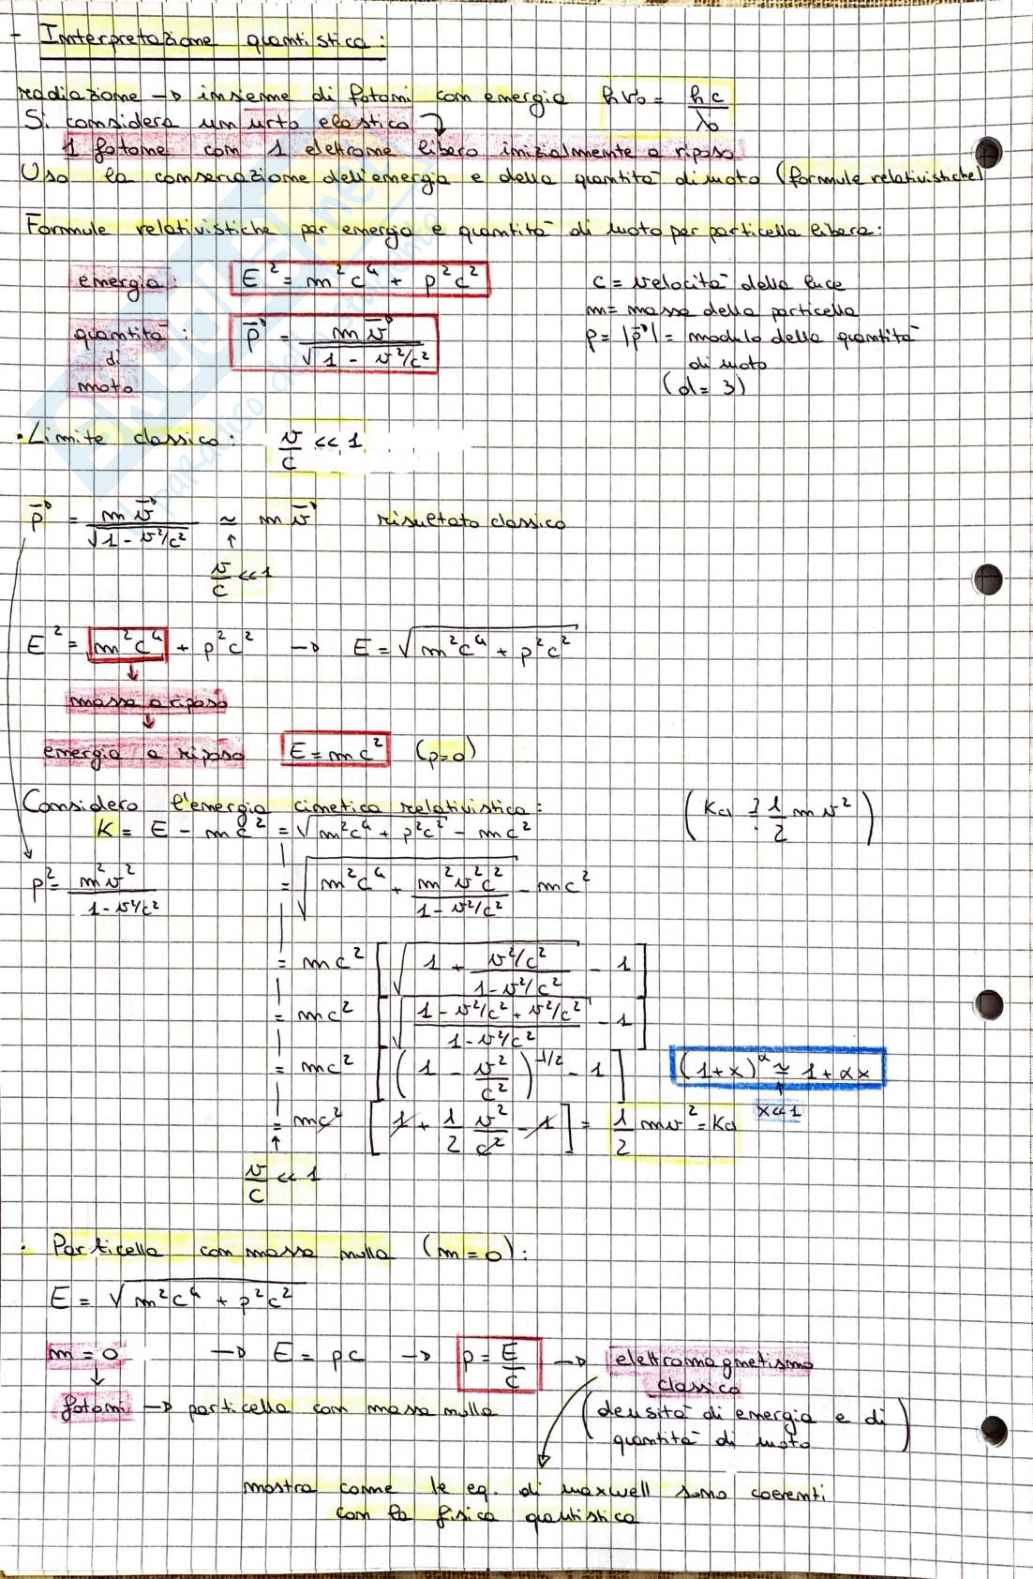 - Interpretazione quantistica:
radiazione → insieme di fotoni con energia hν₀ = hc/λ₀
Si considera un urto elastico
1 fotone con 1 elettrone libero inizialmente a riposo
Uso la conservazione dell'energia e della quantità di moto (formule relativistiche)
Formule relativistiche per energia e quantità di moto per particella libera:
energia: E² = m²c⁴ + p²c² c = velocità della luce
m = massa della particella
quantità di moto: p⃗ = mv⃗/√(1 - v²/c²) p = |p⃗| = modulo della quantità
di moto
(d = 3)
• Limite classico: v/c << 1
p⃗ = mv⃗/√(1 - v²/c²) ≃ mv⃗ risultato classico
↑
v/c << 1
E² = m²c⁴ + p²c² → E = √(m²c⁴ + p²c²)
↓
massa a riposo
↓
energia a riposo E = mc² (p=0)
Considero l'energia cinetica relativistica:
K = E - mc² = √(m²c⁴ + p²c²) - mc² (Kcl = 1/2 mv²)
p² = m²v²/(1 - v²/c²) = √(m²c⁴ + m²v²c²/(1 - v²/c²)) - mc²
= mc² [√(1 + (v²/c²)/(1 - v²/c²)) - 1]
= mc² [√((1 - v²/c² + v²/c²)/(1 - v²/c²)) - 1]
= mc² [(1 - v²/c²)^-1/2 - 1] (1+x)^α ≃ 1 + αx
↑
x<<1
= mc² [1 + 1/2 v²/c² - 1] = 1/2 mv² = Kcl
↑
v/c << 1
• Particella con massa nulla (m = 0):
E = √(m²c⁴ + p²c²)
m = 0 → E = pc → p = E/c → elettromagnetismo
↓ classico
fotoni → particella con massa nulla (densità di energia e di
quantità di moto)
mostra come le eq. di maxwell sono coerenti
con la fisica quantistica